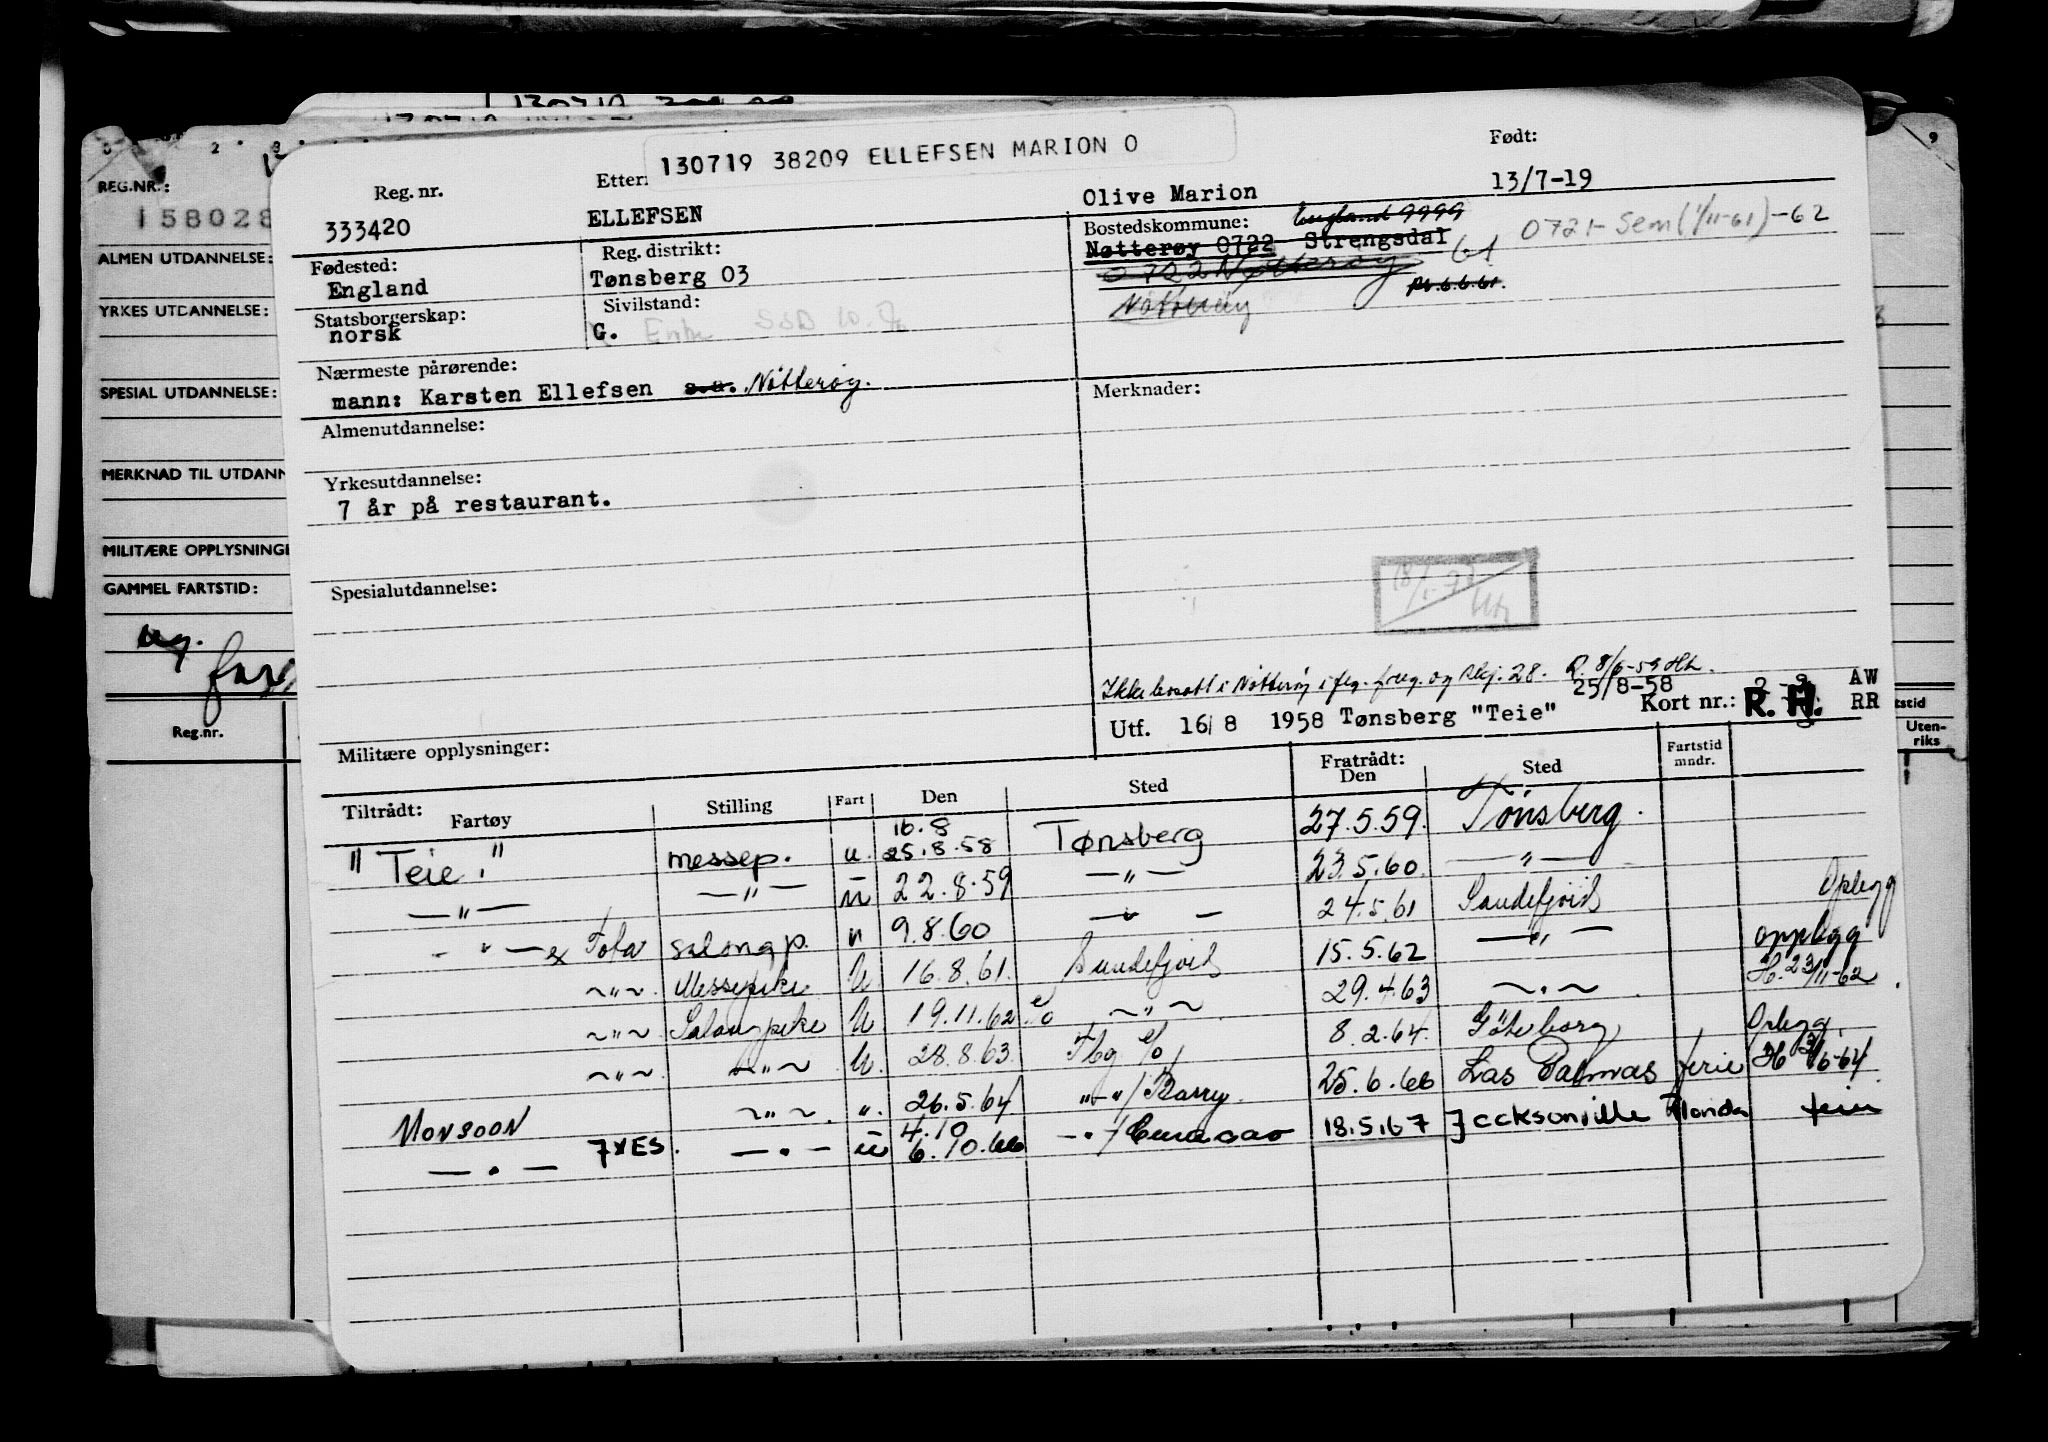 130719 38209 ELLEFSEN MARION O
Reg. nr.
333420
ELLEFSEN
Olive Marion
Født:
13/7-19
Fødested:
England
Reg. distrikt:
Tønsberg 03
Bostedskommune: England 9999
Nøtterøy 0722 Strengsdal 61 0721- Sem (1/11-61) -62
0722 Nøtterøy
Nøtterøy
Statsborgerskap:
norsk
Sivilstand:
G.
Nærmeste pårørende:
mann: Karsten Ellefsen s.a. Nøtterøy.
Merknader:
Almenutdannelse:
Yrkesutdannelse:
7 år på restaurant.
Spesialutdannelse:
Ikke bosatt i Nøtterøy
25/8-58
Utf. 16/8 1958 Tønsberg "Teie" Kort nr.: R. H. AW
RR
Militære opplysninger:
Tiltrådt: Fartøy Stilling Fart Den Sted Fratrådt: Den Sted Fartstid mndr.
"Teie." messep. u. 16.8 25.8.58 Tønsberg 27.5.59. Tønsberg.
—"— —"— u 22.8.59 —"— 23.5.60. —"—
—"— ex Tota salongp. u 9.8.60 24.5.61 Sandefjord Oplegg
~"~ Messepike U 16.8.61. Sandefjord 15.5.62 —"— opplegg
~"~ Salongpike U 19.11.62 ~"~ 29.4.63 ~"~ H. 23/11-62
~"~ ~"~ U. 28.8.63. Tbg 8.2.64. Göteborg Oplegg.
MONSOON ~"~ ". 26.5.64 "-"/Barry. 25.6.66 Las Palmas ferie
—"— 7XES. —"— u 4.10 6.10.66 -"-/Curacao 18.5.67 Jacksonville Florida ferie
REG.NR.:
158028
ALMEN UTDANNELSE:
YRKES UTDANNELSE:
SPESIAL UTDANNELSE:
MERKNAD TIL UTDANN
MILITÆRE OPPLYSNINGE
GAMMEL FARTSTID:
Reg.nr.
Uten-
riks